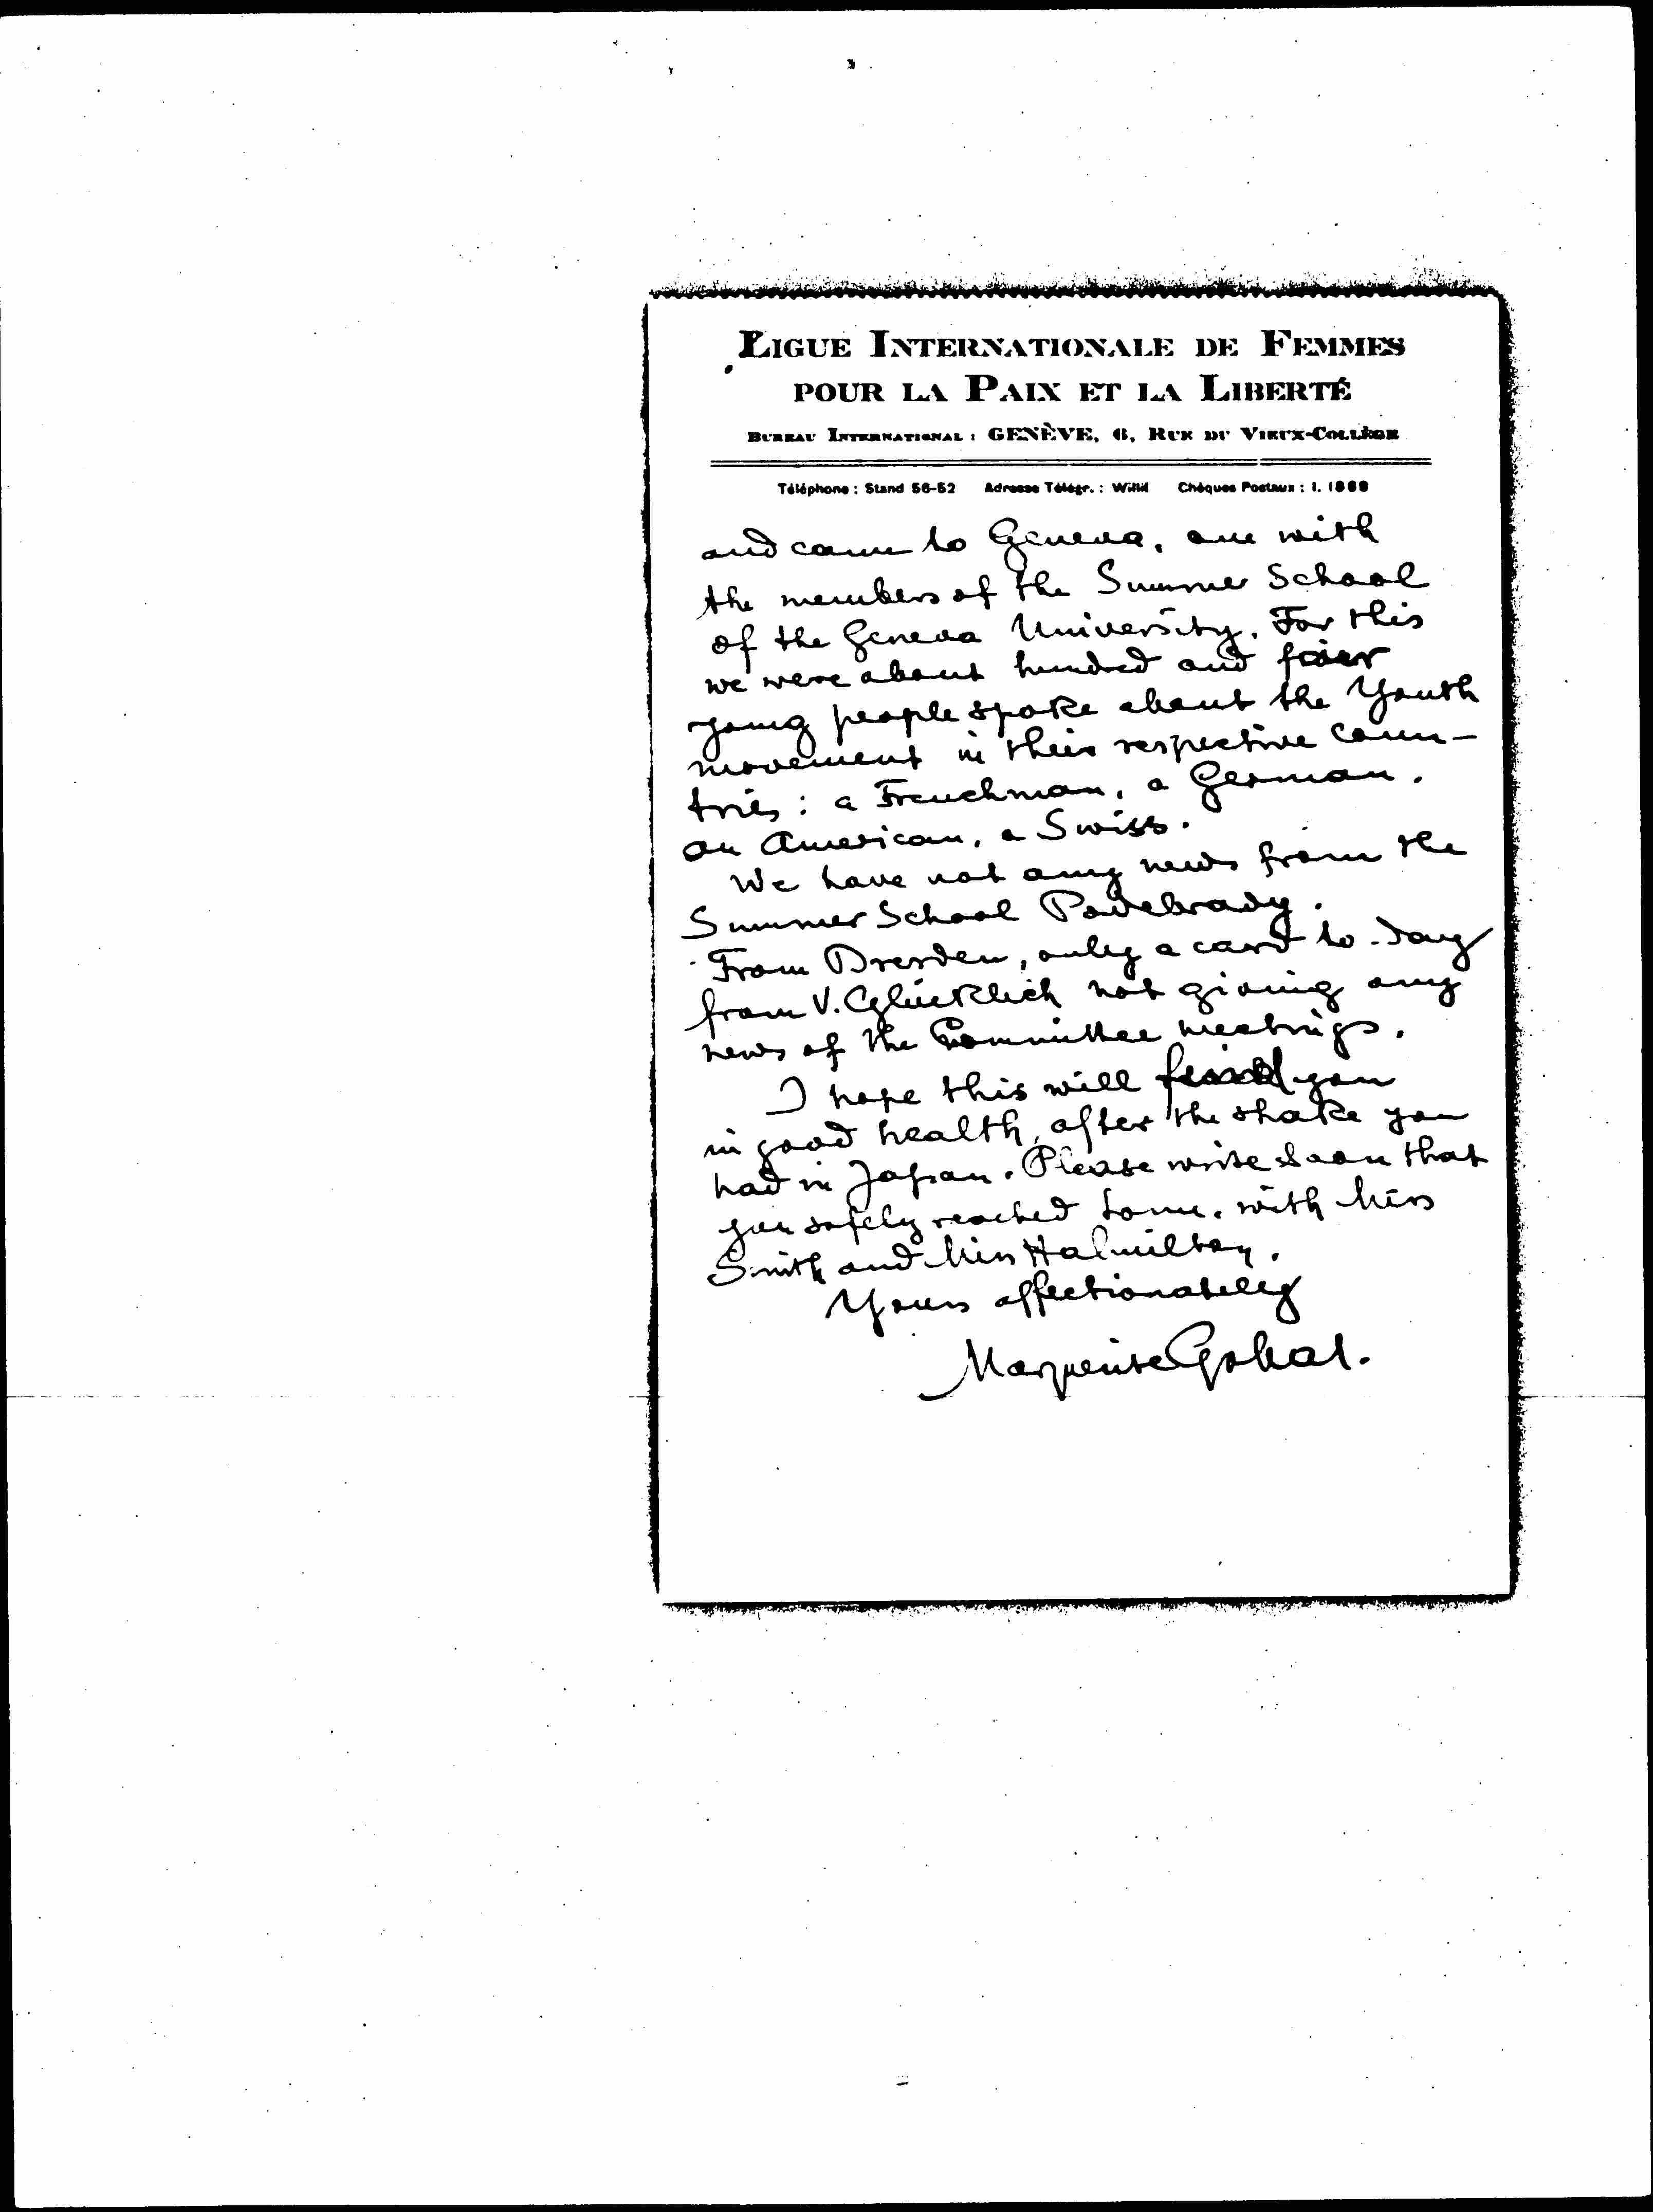 LIGUE INTERNATIONALE DE FEMMES
POUR LA PAIX ET LA LIBERTÉ
BUREAU INTERNATIONAL : GENÈVE, 6, RUE DU VIEUX-COLLÈGE
Téléphone : Stand 56-52 Adresse Télégr. : Willif Chèques Postaux : I. 1869
and came to Geneva, one with
the members of the Summer School
of the Geneva University. For this
we were about hundred and four
young people spoke about the Youth
movement in their respective coun-
tries : a Frenchman, a German,
an American, a Swiss.
We have not any news from the
Summer School Podebrady.
From Dresden, only a card to-day
from V. Glücklich not giving any
news of the Committee meetings.
I hope this will find you
in good health, after the shake you
had in Japan. Please write soon that
you safely reached home, with Miss
Smith and Miss Halmilton.
Yours affectionately
Marguerite Gobat.